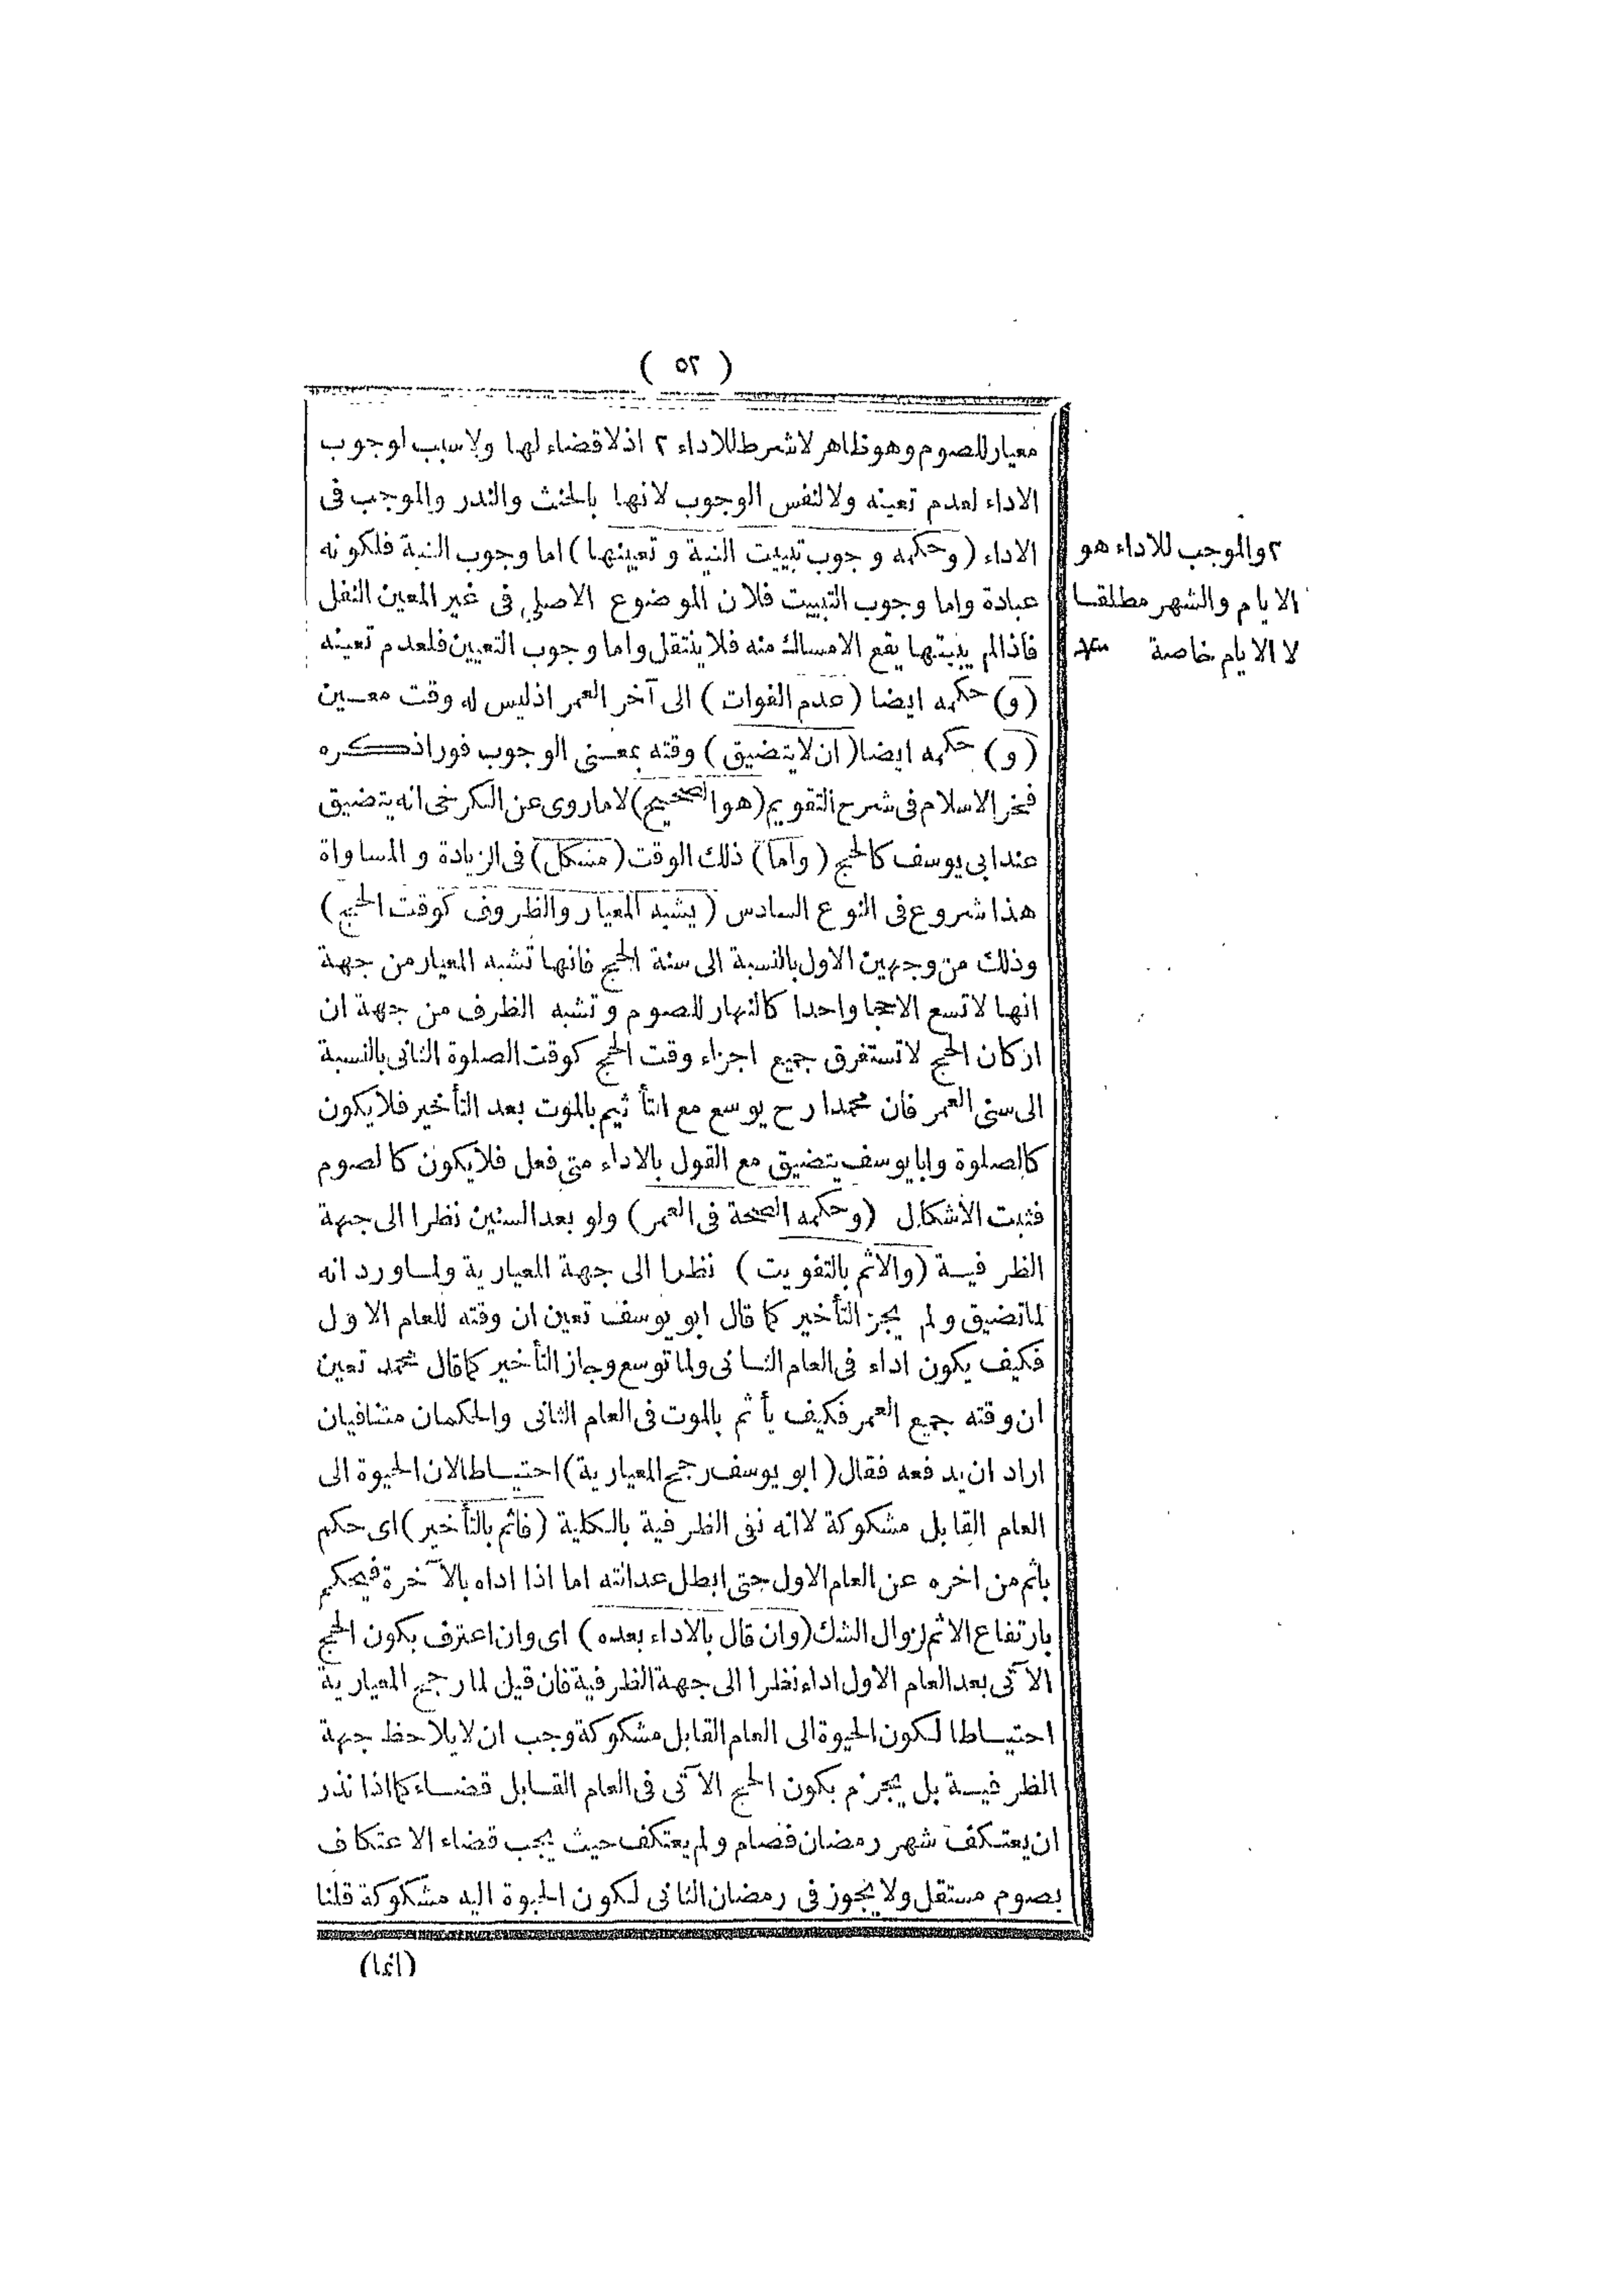 ( ٥٢ )
معيار للصوم وهو ظاهر لا شرط للاداء ٢ اذ لا قضاء لها ولا سبب لوجوب
الاداء لعدم تعينه ولا لنفس الوجوب لانها بالحنث والنذر والموجب فى
الاداء (وحكمه وجوب تبييت النية وتعيينها) اما وجوب النية فلكونه
عبادة واما وجوب التبييت فلان الموضوع الاصلى فى غير المعين النفل
فاذا لم يبيتها يقع الامساك منه فلا ينتقل واما وجوب التعيين فلعدم تعينه
(و) حكمه ايضا (عدم الفوات) الى آخر العمر اذ ليس له وقت معين
(و) حكمه ايضا (ان لا يتضيق) وقته بمعنى الوجوب فورا ذكره
فخر الاسلام فى شرح التقويم (هو الصحيح) لا ما روى عن الكرخى انه يتضيق
عند ابى يوسف كالحج (واما) ذلك الوقت (مشكل) فى الزيادة والمساواة
هذا شروع فى النوع السادس (يشبه المعيار والظروف كوقت الحج)
وذلك من وجهين الاول بالنسبة الى سنة الحج فانها تشبه المعيار من جهة
انها لا تسع الا حجا واحدا كالنهار للصوم وتشبه الظرف من جهة ان
اركان الحج لا تستغرق جميع اجزاء وقت الحج كوقت الصلوة الثانى بالنسبة
الى سنى العمر فان محمدا رح يوسع مع التأثيم بالموت بعد التأخير فلا يكون
كالصلوة وابا يوسف يتضيق مع القول بالاداء متى فعل فلا يكون كالصوم
فثبت الاشكال (وحكمه الصحة فى العمر) ولو بعد السنين نظرا الى جهة
الظرفية (والاثم بالتفويت) نظرا الى جهة المعيارية ولما ورد انه
لما تضيق ولم يجز التأخير كما قال ابو يوسف تعين ان وقته للعام الاول
فكيف يكون اداء فى العام الثانى ولما توسع وجاز التأخير كما قال محمد تعين
ان وقته جميع العمر فكيف يأثم بالموت فى العام الثانى والحكمان متنافيان
اراد ان يدفعه فقال (ابو يوسف رجح المعيارية) احتياطا لان الحيوة الى
العام القابل مشكوكة لا انه نفى الظرفية بالكلية (فاثم بالتأخير) اى حكم
باثم من اخره عن العام الاول حتى ابطل عدالته اما اذا اداه بالآخرة فيحكم
بارتفاع الاثم لزوال الشك (وان قال بالاداء بعده) اى وان اعترف بكون الحج
الآتى بعد العام الاول اداء نظرا الى جهة الظرفية فان قيل لما رجح المعيارية
احتياطا لكون الحيوة الى العام القابل مشكوكة وجب ان لا يلاحظ جهة
الظرفية بل يجزم بكون الحج الآتى فى العام القابل قضاء كما اذا نذر
ان يعتكف شهر رمضان فصام ولم يعتكف حيث يجب قضاء الاعتكاف
بصوم مستقل ولا يجوز فى رمضان الثانى لكون الحيوة اليه مشكوكة قلنا
(انما)
٢ والموجب للاداء هو
الايام والشهر مطلقا
لا الايام خاصة